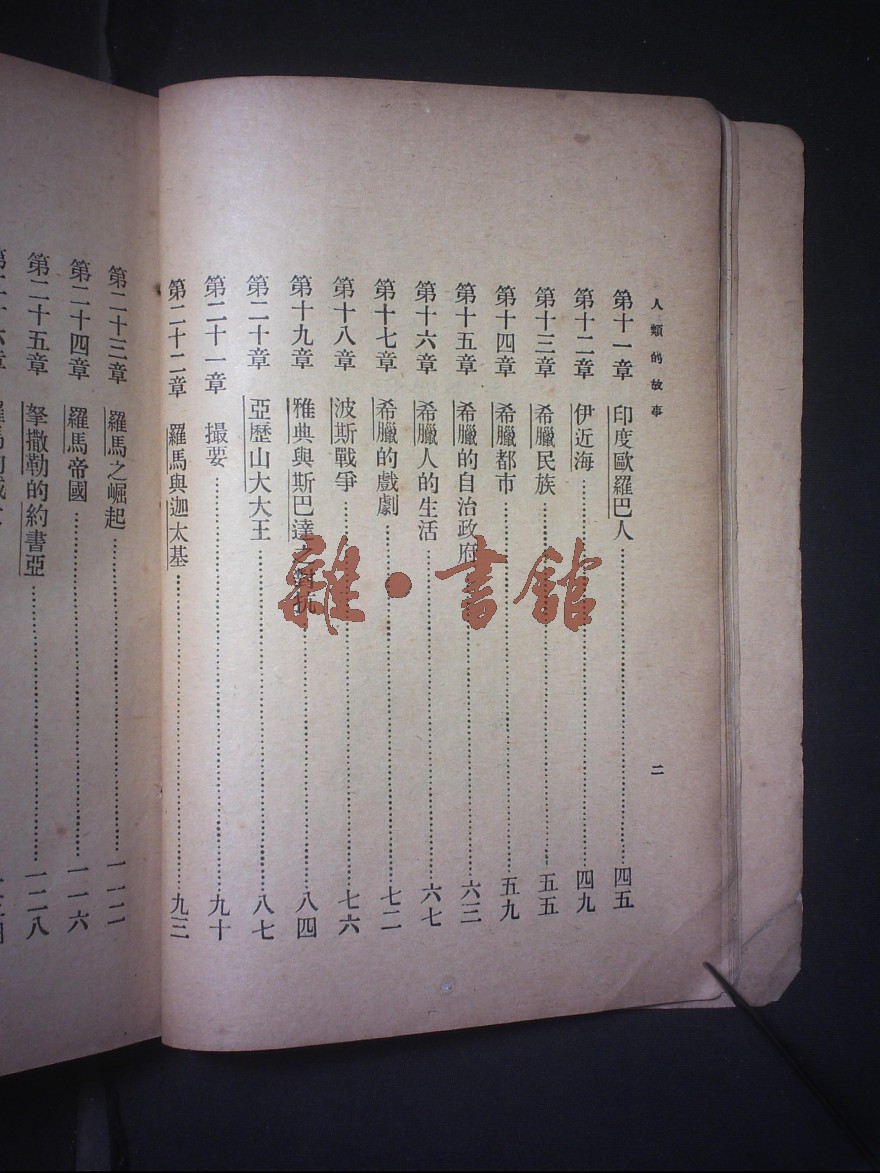 人類的故事
二
第十一章 印度歐羅巴人 四五
第十二章 伊近海 四九
第十三章 希臘民族 五五
第十四章 希臘都市 五九
第十五章 希臘的自治政府 六三
第十六章 希臘人的生活 六七
第十七章 希臘的戲劇 七二
第十八章 波斯戰爭 七六
第十九章 雅典與斯巴達之對抗 八四
第二十章 亞歷山大大王 八七
第二十一章 撮要 九十
第二十二章 羅馬與迦太基 九三
第二十三章 羅馬之崛起 一一二
第二十四章 羅馬帝國 一一六
第二十五章 拏撒勒的約書亞 一二八
雜·書館